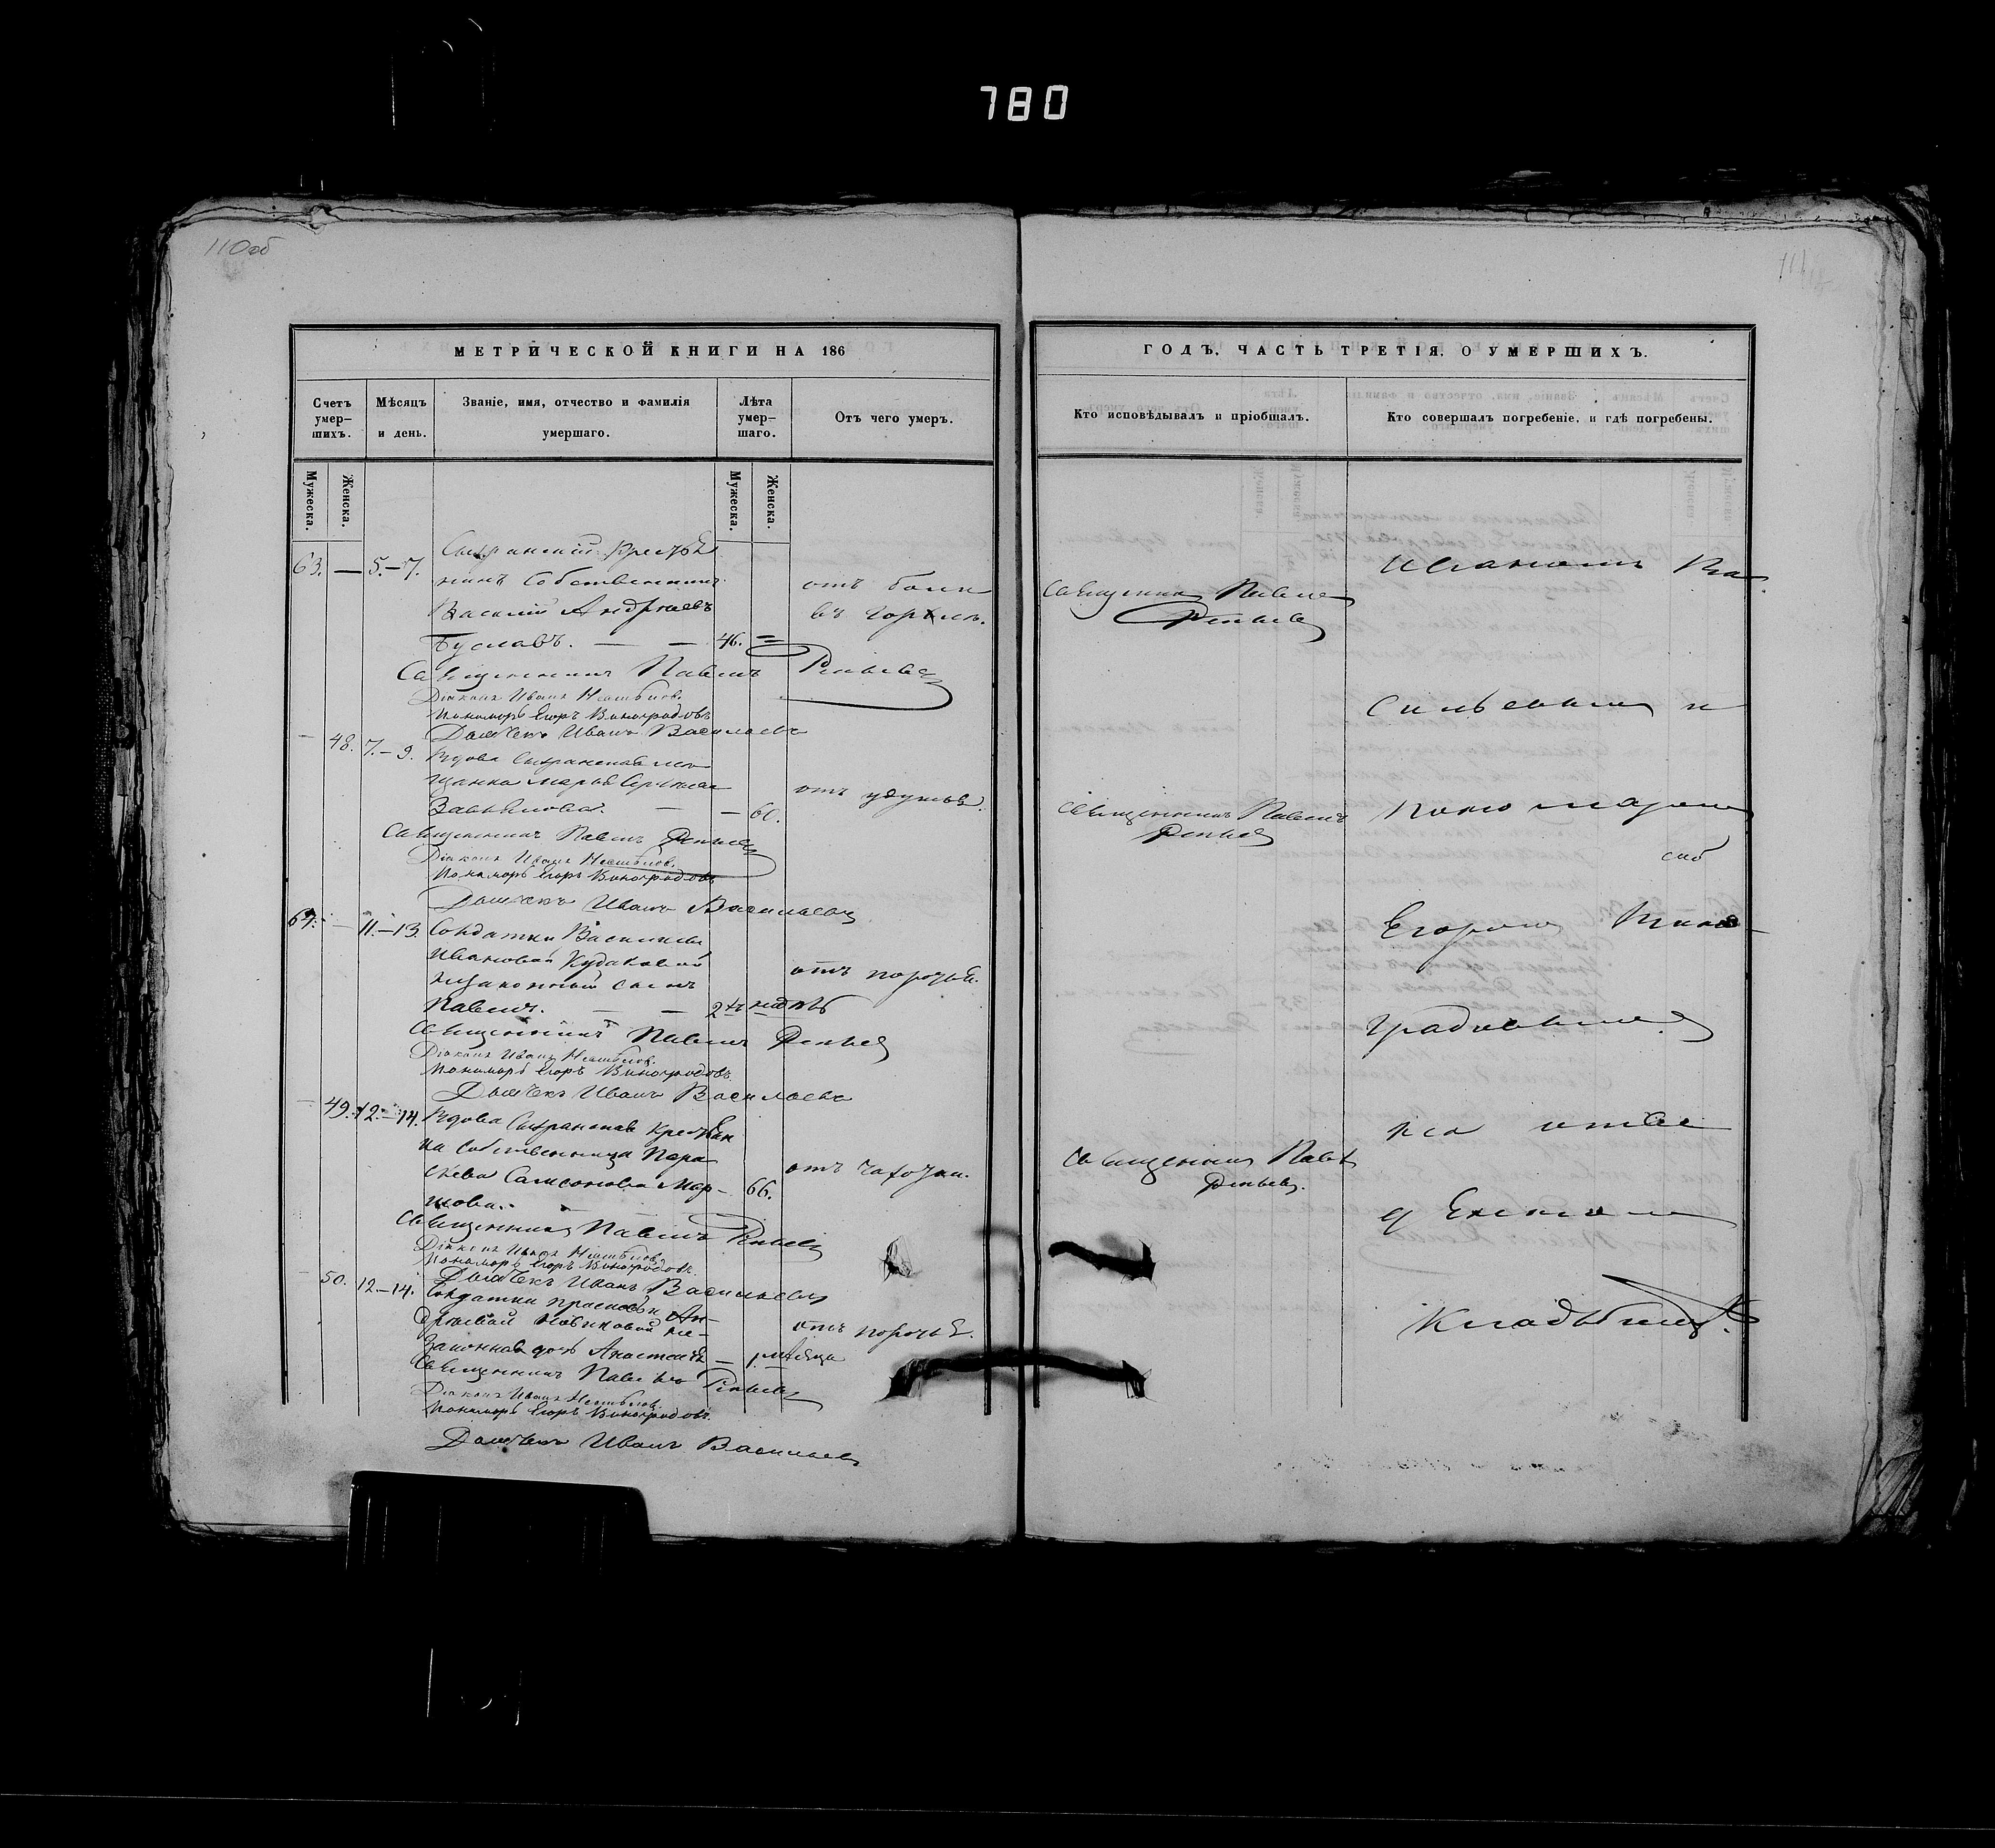 780
110об
МЕТРИЧЕСКОЙ КНИГИ НА 186
Счетъ умер-шихъ.
Мѣсяцъ и день.
Званіе, имя, отчество и фамилія умершаго.
Лѣта умер-шаго.
Отъ чего умеръ.
Мужеска.
Женска.
Мужеска.
Женска.
63. — 5.–7.
Сызранскій крестья
нинъ собственникъ
Василій Андреевъ
Буславъ. — — 46. =
отъ боли
въ горлѣ.
Священникъ Павелъ
Діаконъ Иванъ
Пономарь Егоръ Виноградовъ
Дьячекъ Иванъ Васильевъ
— 48. 7.–9.
Вдова Сызранская мѣ
щанка Марья Сергѣева
— — 60.
отъ удушья.
Священникъ Павелъ
Діаконъ Иванъ
Пономарь Егоръ Виноградовъ
Дьячекъ Иванъ Васильевъ
— 11.–13.
Солдатки Василисы
Ивановой Кудаковой
незаконный сынъ
Павелъ. — — 2хъ недѣль
отъ
Священникъ Павелъ
Діаконъ Иванъ
Пономарь Егоръ Виноградовъ
Дьячекъ Иванъ Васильевъ
— 49. 12.–14.
Вдова Сызранская крестьян
ка собственница Пара
скева Самсонова Мар–
66.
отъ чахотки.
Священникъ Павелъ
Діаконъ Иванъ
Пономарь Егоръ Виноградовъ
Дьячекъ Иванъ Васильевъ
— 50. 12.–14.
Солдатки Прасковьи Ан–
дреевой Новиковой не–
законная дочь Анастасія — 1. мѣсяца
отъ
Священникъ Павелъ
Діаконъ Иванъ
Пономарь Егоръ Виноградовъ
Дьячекъ Иванъ Васильевъ
ГОДЪ, ЧАСТЬ ТРЕТІЯ, О УМЕРШИХЪ.
Кто исповѣдывалъ и пріобщалъ.
Кто совершалъ погребеніе, и гдѣ погребены.
Священникъ Павелъ
Священникъ Павелъ
Священникъ Павелъ
Иваномъ Ва
сильевымъ и
пономаремъ
Егоромъ Вино
градовымъ
на
кладбищѣ.